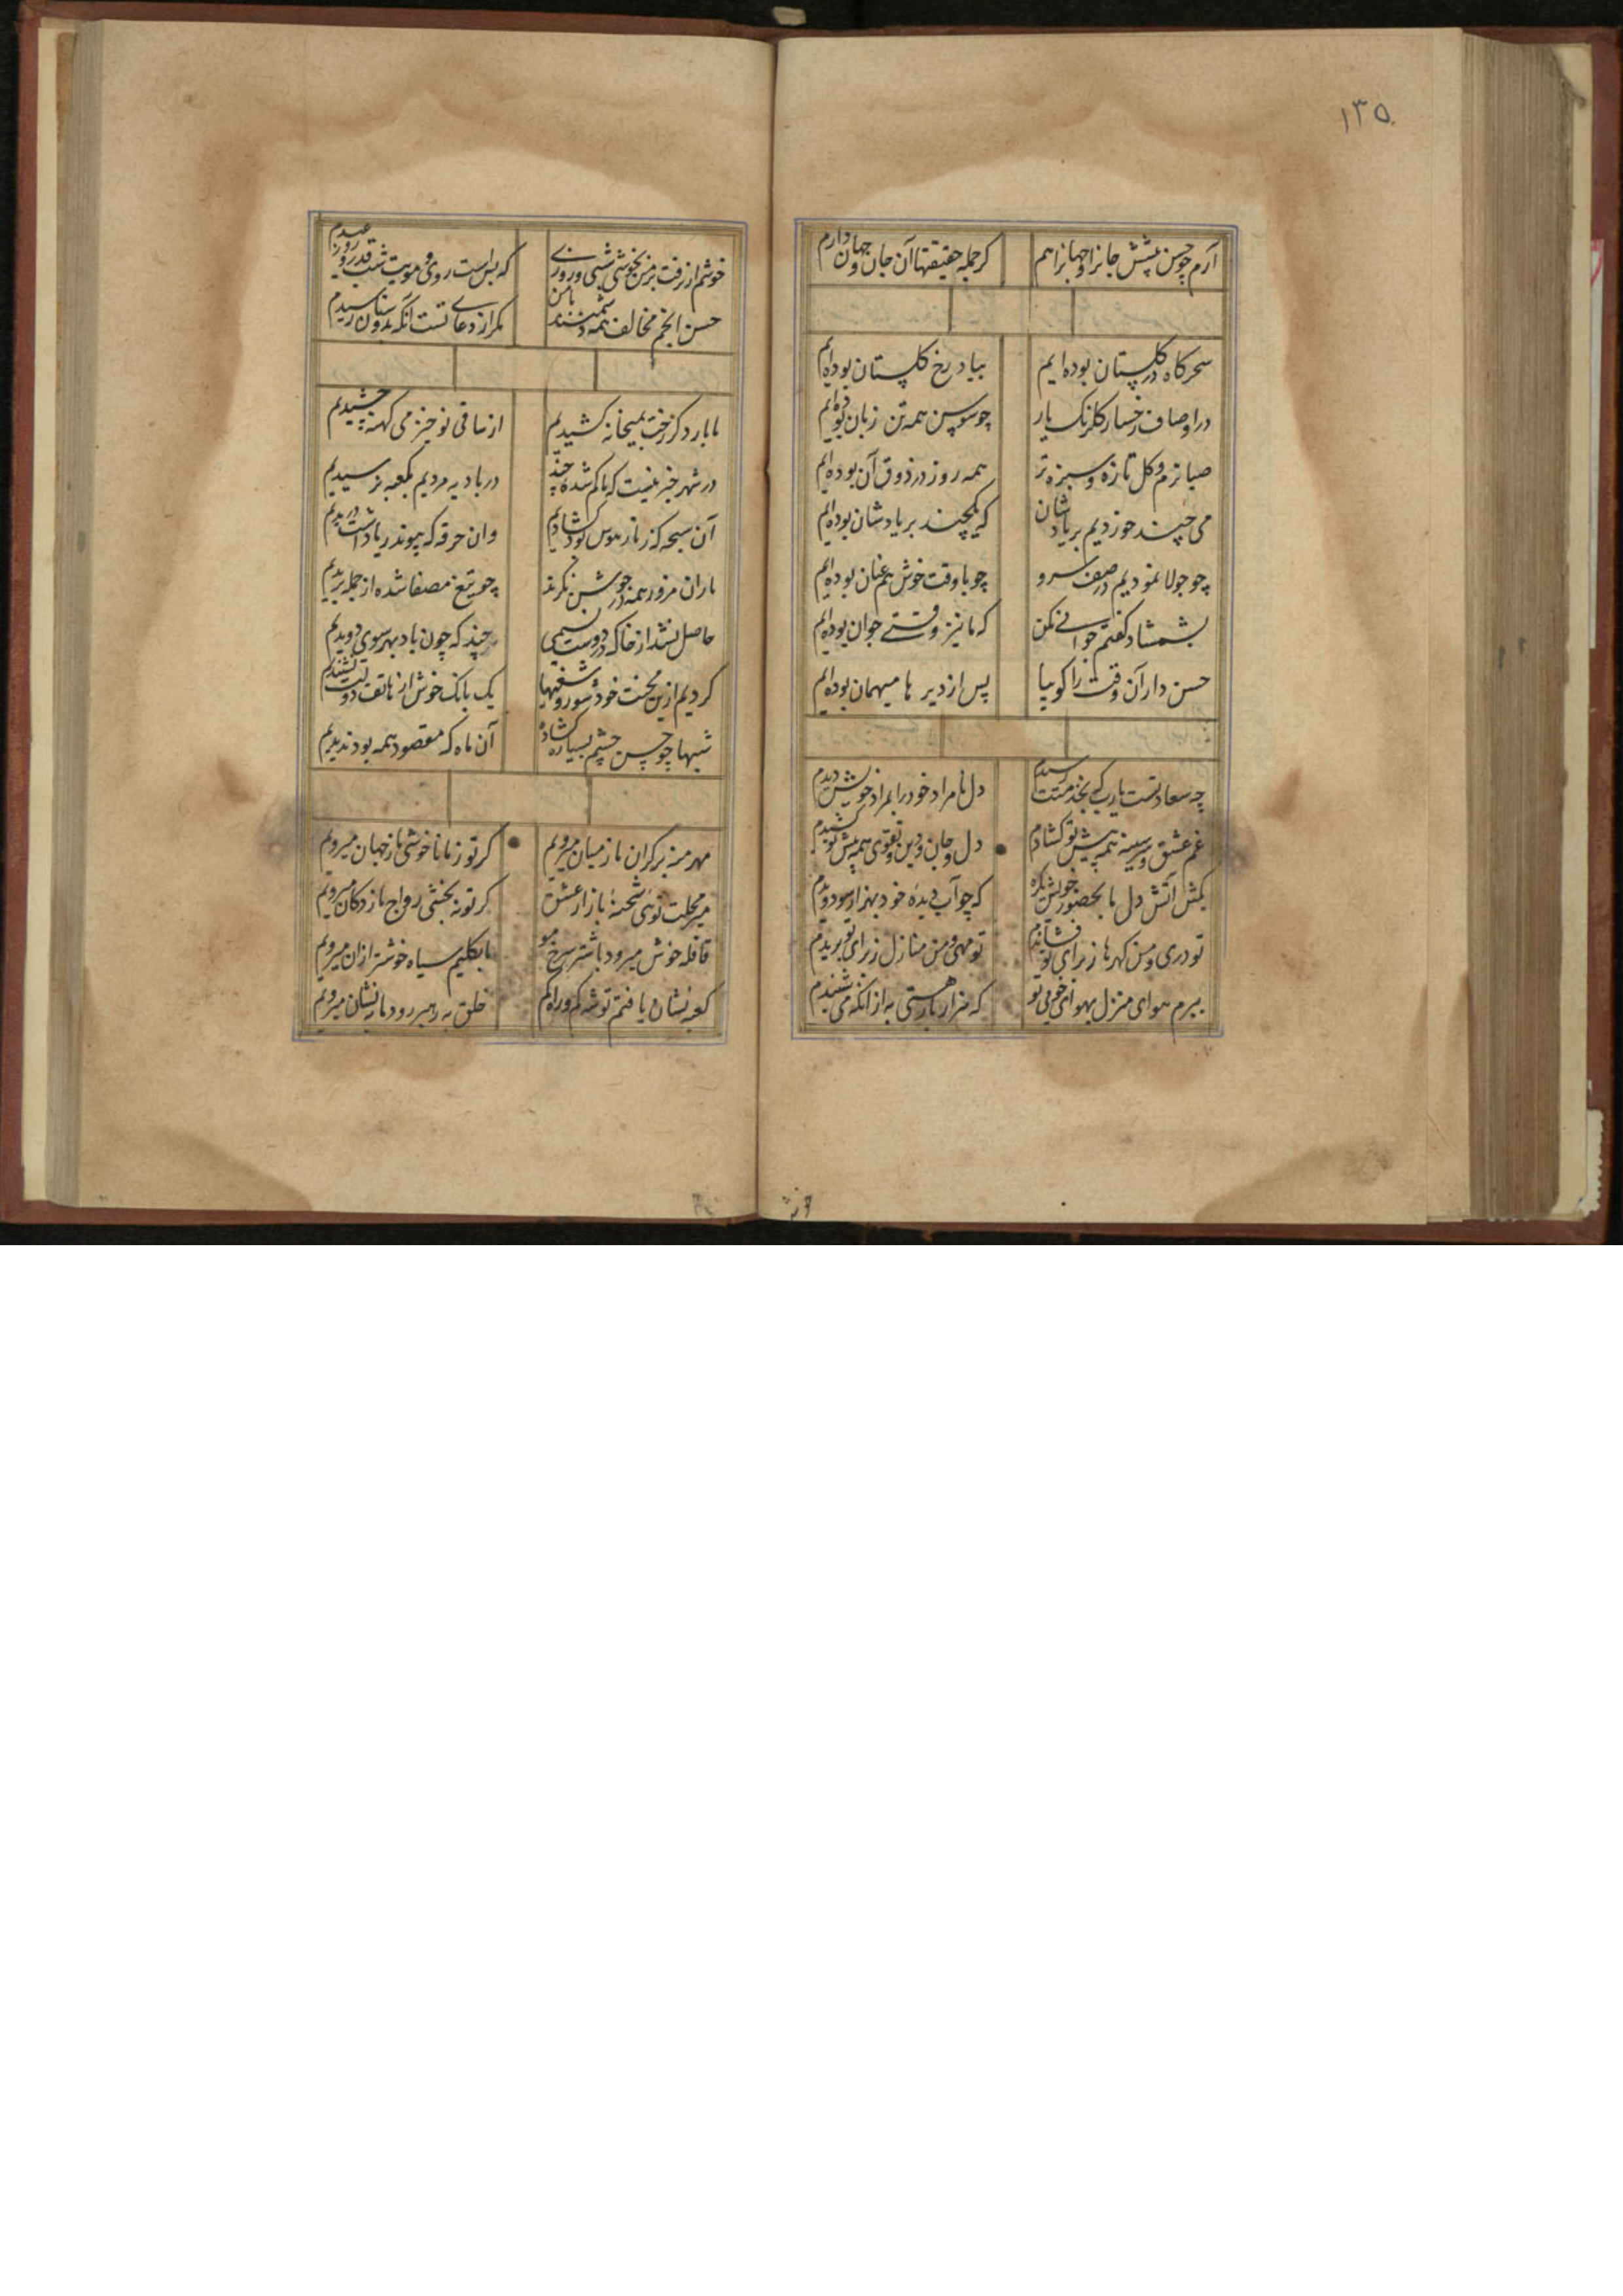 ۱۳۵
آرم چو حسن پیشش جانرا و جهانرا هم کز جمله حقیقتها آن جان و جهان دارم
سحرکاه در کلستان بوده ایم بیاد رخ کلستان بوده ایم
در اوصاف رخسار کلرنک یار چو سوسن همه تن زبان بوده ایم
صبا نرم و کل تازه و سبزه تر همه روز در ذوق آن بوده ایم
می چند خوردیم بر یادشان که یکچند بر یادشان بوده ایم
چو جولا نمودیم در صف سرو چو با وقت خوش هم عنان بوده ایم
بشمشاد کفتم جوانی مکن که ما نیز وقتی جوان بوده ایم
حسن دار آن وقت را کوییا پس از دیرها میهمان بوده ایم
چه سعادتست یارب که بخدمتت رسیدم دل نامراد خود را بمراد خویش دیدم
غم عشق و سر سینه همه پیش تو کشادم دل و جان و دین و تقوی همه پیش تو کشیدم
بکش آتش دل ما بحضور خویش یکره که چو آب دیده خود بهزار سو دویدم
تو دری و من کهرها ز برای تو فشاندم تو مهی و من منازل ز برای تو بریدم
ببرم هوای منزل بهوای خوبی تو که هزار بار هستی به از انکه می شنیدم
خوشم ار رفت بر من بخوشی شبی و روزی که بس است روی و مویت شب قدر و روز عیدم
حسن انجم مخالف همه دشمنند با من مکر از دعای تست آنکه بدوستان رسیدم
ما بار دکر رخت بمیخانه کشیدیم از ساقی نوخیز می کهنه چشیدیم
در شهر خبر نیست که ما کم شده چند در بادیه مردیم بکعبه نرسیدیم
آن سبحه که زنار هوس بود کشادیم وان خرقه که پیوند ریا داشت دریدیم
یاران مزور همه در جوشن مکرند چو تیغ مصفا شده از جمله بریدیم
حاصل نشد از خاک در دوست نسیمی چند که چون باد بهر سوی دویدیم
کردیم ازین محنت خود شور و شغبها یک بانک خوش از هاتف دولت نشنیدیم
شبها چو حسن چشم بسیاره کشاده آن ماه که مقصود همه بود ندیدیم
مهر منه بر کران ما ز میان میرویم کر تو ز ما ناخوشی ما ز جهان میرویم
میر محلت توئی شحنه بازار عشق کر تو نه بخشی رواج ما ز دکان میرویم
قافله خوش میرود با شتر سرخ مو ما بکلیم سیاه خوشتر ازان میرویم
کعبه نشان یافتم توشه کم و راه کم خلق به رهبر رود ما به نشان میرویم